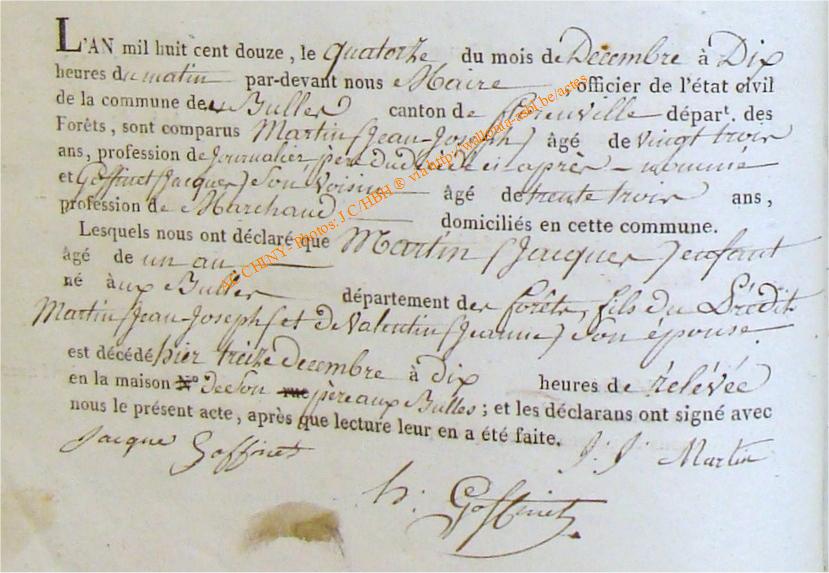 L'AN mil huit cent douze, le quatorze du mois de Decembre à Dix
heures du matin par-devant nous Maire, officier de l'état civil
de la commune des Bulles canton de florenville départ. des
Forêts, sont comparus Martin (Jean-Joseph) âgé de vingt trois
ans, profession de Journalier père du ci après nommé
et Goffinet (Jacques) Son Voisin âgé de trente trois ans,
profession de Marchand domiciliés en cette commune.
Lesquels nous ont déclaré que Martin (Jacques) enfant
âgé de un an
né aux Bulles département des forêts, fils du Srédit
Martin (Jean-Joseph) et de Valentin (Jeanne) Son épouse.
est décédé hier treize decembre à dix heures de rélévée
en la maison N.º de Son rue père aux Bulles ; et les déclarans ont signé avec
nous le présent acte, après que lecture leur en a été faite.
Jacque Goffinet J. J. Martin
h. Goffinet
CHINY - Photos: J C/HBH ® via http://wallonia-asbl.be/actes